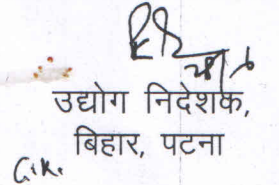 उद्योग निदेशक,
बिहार, पटना